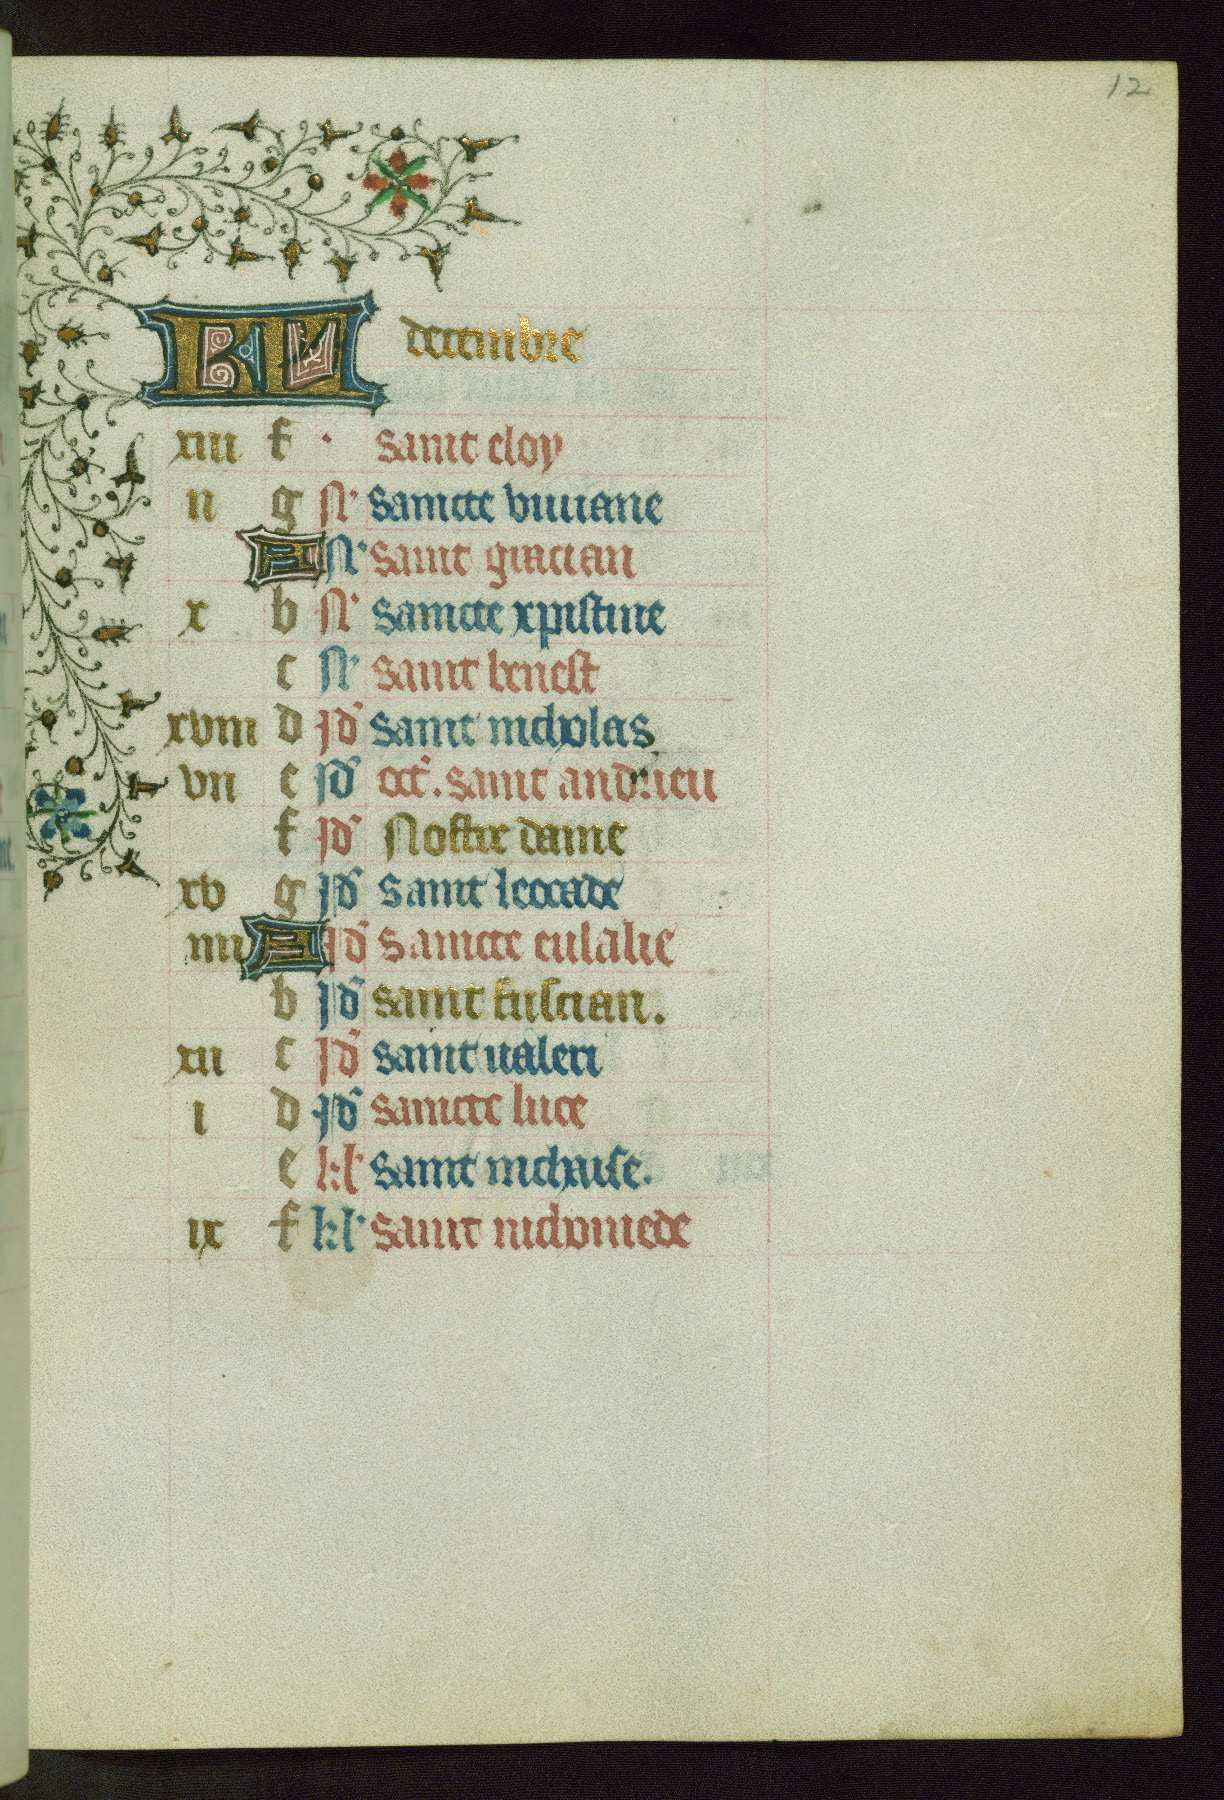 12
KL decembre
xiii f · saint eloy
ii g N· saincte viviane
A N· saint gracian
x b N· saincte xpistine
c N· saint benest
xviii d id saint nicholas
vii e id oct. saint andrieu
f id Nostre dame
xv g id saint leocade
iiii A id saincte eulalie
b id saint fuscian.
xii c id saint valeri
i d id saincte luce
e kl saint nichaise.
ix f kl· saint nichomede